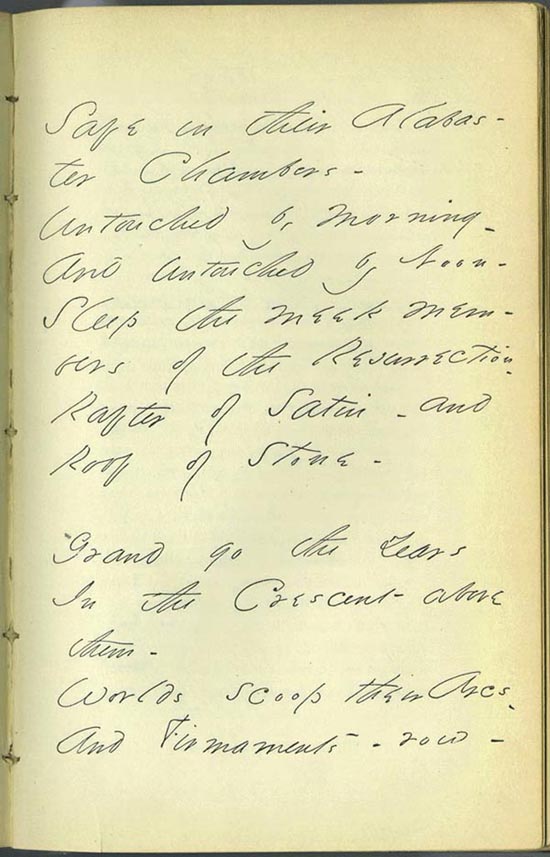 Safe in their Alabas-
ter Chambers -
Untouched by Morning -
And untouched by Noon -
Sleep the meek mem-
bers of the Resurrection -
Rafter of Satin - and
Roof of Stone -
Grand go the Years
In the Crescent - above
them -
Worlds scoop their Arcs -
And Firmaments - row -